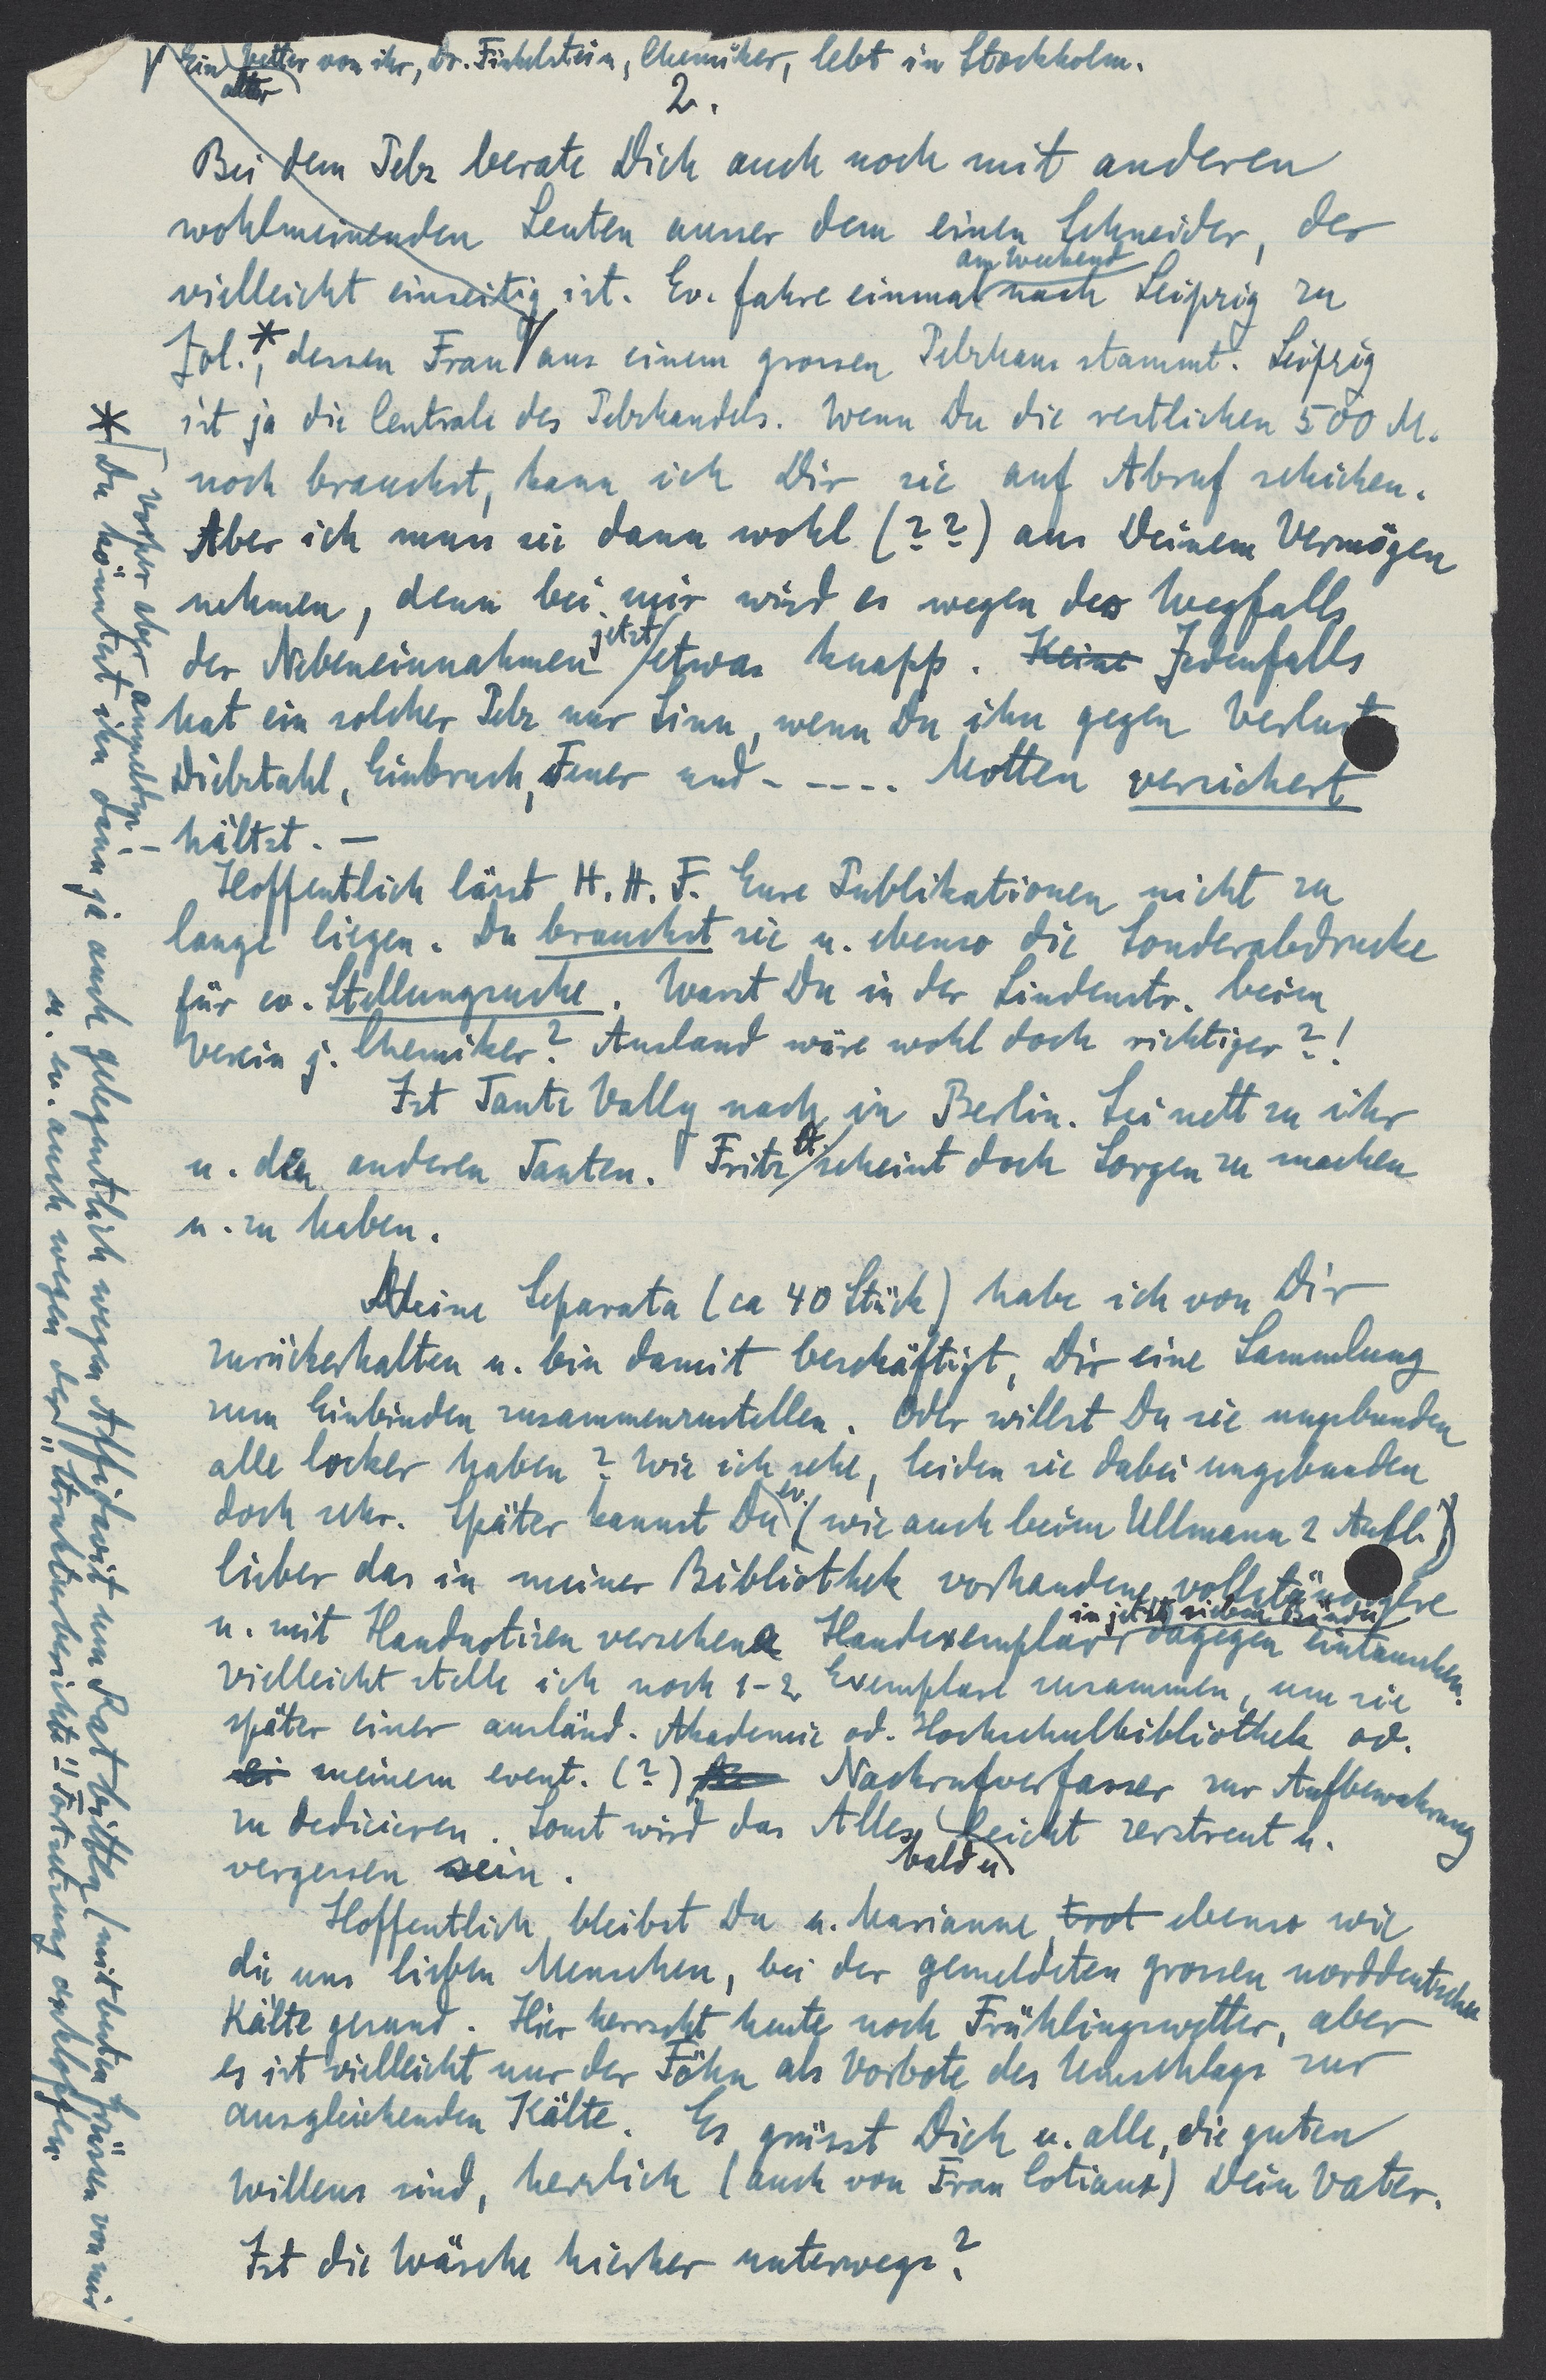 Ein alter Vetter von ihr, Dr. Finkelstein, Chemiker, lebt in Stockholm.
2.
Bei dem Pelz berate Dich auch noch mit anderen
wohlmeinenden Leuten ausser dem einen Schneider, der
vielleicht einseitig ist. Ev. fahre einmal am Weekend nach Leipzig zu
Jol.*, dessen Frau aus einem grossen Pelzhaus stammt. Leipzig
ist ja die Centrale des Pelzhandels. Wenn Du die restlichen 500 M.
noch brauchst, kann ich Dir sie auf Abruf schicken.
Aber ich muss sie dann wohl (??) aus Deinem Vermögen
nehmen, denn bei mir wird es wegen des Wegfalls
der Nebeneinnahmen jetzt etwas knapp. Keine Jedenfalls
hat ein solcher Pelz nur Sinn, wenn Du ihn gegen Verlust
Diebstahl, Einbruch, Feuer und - ---- Motten versichert
hältst. —
Hoffentlich lässt H. H. F. Eure Publikationen nicht zu
lange liegen. Du brauchst sie u. ebenso die Sonderabdrucke
für ev. Stellungsuche. Warst Du in der Lindenstr. beim
Verein j. Chemiker? Ausland wäre wohl doch richtiger?!
Ist Tante Vally noch in Berlin. Sei nett zu ihr
u. den anderen Tanten. Fritz A. scheint doch Sorgen zu machen
u. zu haben.
Meine Separata (ca 40 Stück) habe ich von Dir
zurückerhalten u. bin damit beschäftigt, Dir eine Sammlung
zum Einbinden zusammenzustellen. Oder willst Du sie ungebunden
alle locker haben? Wie ich sehe, leiden sie dabei ungebunden
doch sehr. Später kannst Du ev. (wie auch beim Ullmann 2 Aufl.)
lieber das in meiner Bibliothek vorhandene vollständigere
u. mit Handnotizen versehene Handexemplar in jetzt sieben Bänden dagegen eintauschen.
Vielleicht stelle ich noch 1-2 Exemplare zusammen, um sie
später einer ausländ. Akademie od. Hochschulbibliothek od.
ei meinem event. (?) Nachrufverfasser zur Aufbewahrung
zu dedicieren. Sonst wird das Alles bald u. leicht zerstreut u.
vergessen sein.
Hoffentlich bleibst Du u. Marianne trot ebenso wie
die uns lieben Menschen, bei der gemeldeten grossen norddeutschen
Kälte gesund. Hier herrscht heute noch Frühlingswetter, aber
es ist vielleicht nur der Föhn als Vorbote des Umschlags zur
ausgleichenden Kälte. Es grüsst Dich u. alle, die guten
Willens sind, herzlich (auch von Frau Cotiaux) Dein Vater.
Ist die Wäsche hierher unterwegs?
* [vorher aber anmelden!-
Du könntest ihn dann ja auch gelegentlich wegen Affidavit um Rat bitten (mit besten Grüssen von mir
u. ev. auch wegen der "Strukturberichte"-Fortsetzung anklopfen.